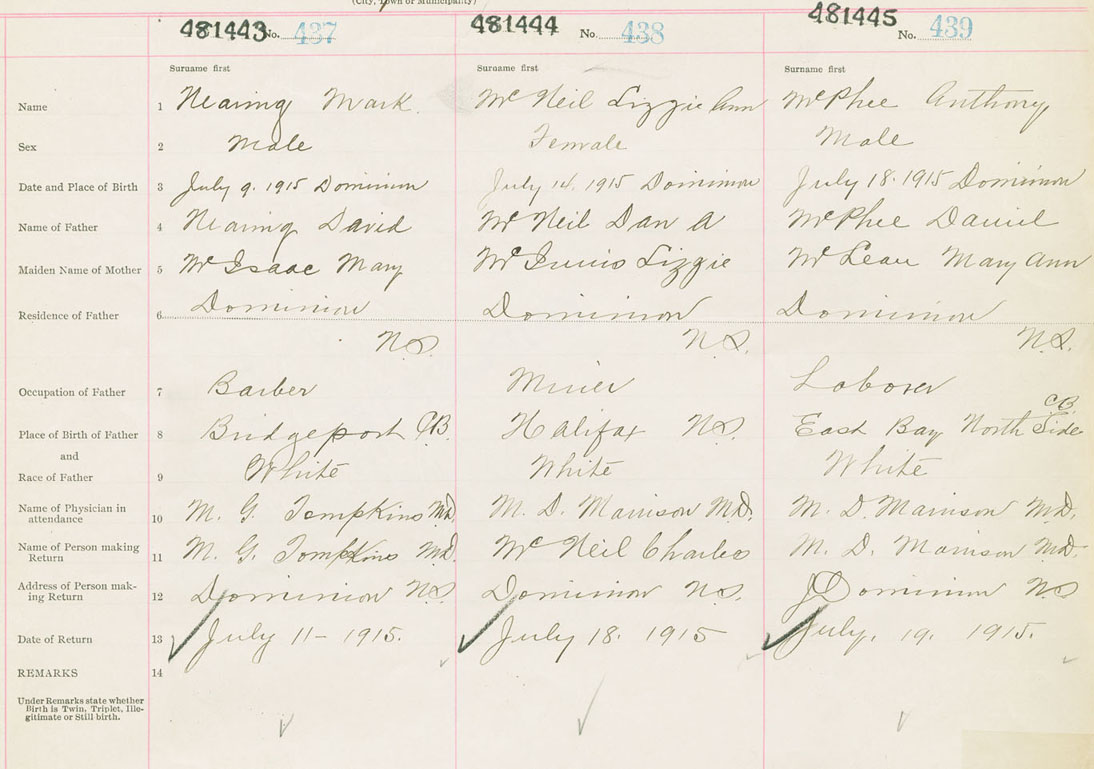 (City, Town or Municipality)
481443 No. 437 481444 No. 438 481445 No. 439
Surname first Surname first Surname first
Name 1 Nearing Mark McNeil Lizzie Ann McPhee Anthony
Sex 2 Male Female Male
Date and Place of Birth 3 July 9. 1915 Dominion July 14. 1915 Dominion July 18. 1915 Dominion
Name of Father 4 Nearing David McNeil Dan A McPhee Daniel
Maiden Name of Mother 5 McIsaac Mary McInnis Lizzie McLean Mary Ann
Residence of Father 6 Dominion Dominion Dominion
N.S. N.S. N.S.
Occupation of Father 7 Barber Miner Laborer
Place of Birth of Father 8 Bridgeport C.B. Halifax N.S. East Bay North Side C.B.
and
Race of Father 9 White White White
Name of Physician in
attendance 10 M. G. Tompkins M.D. M. D. Morrison M.D. M. D. Morrison M.D.
Name of Person making
Return 11 M. G. Tompkins M.D. McNeil Charles M. D. Morrison M.D.
Address of Person mak-
ing Return 12 Dominion N.S. Dominion N.S. Dominion N.S
Date of Return 13 July 11 - 1915. July 18. 1915 July. 19. 1915.
REMARKS 14
Under Remarks state whether
Birth is Twin, Triplet, Ille-
gitimate or Still birth.